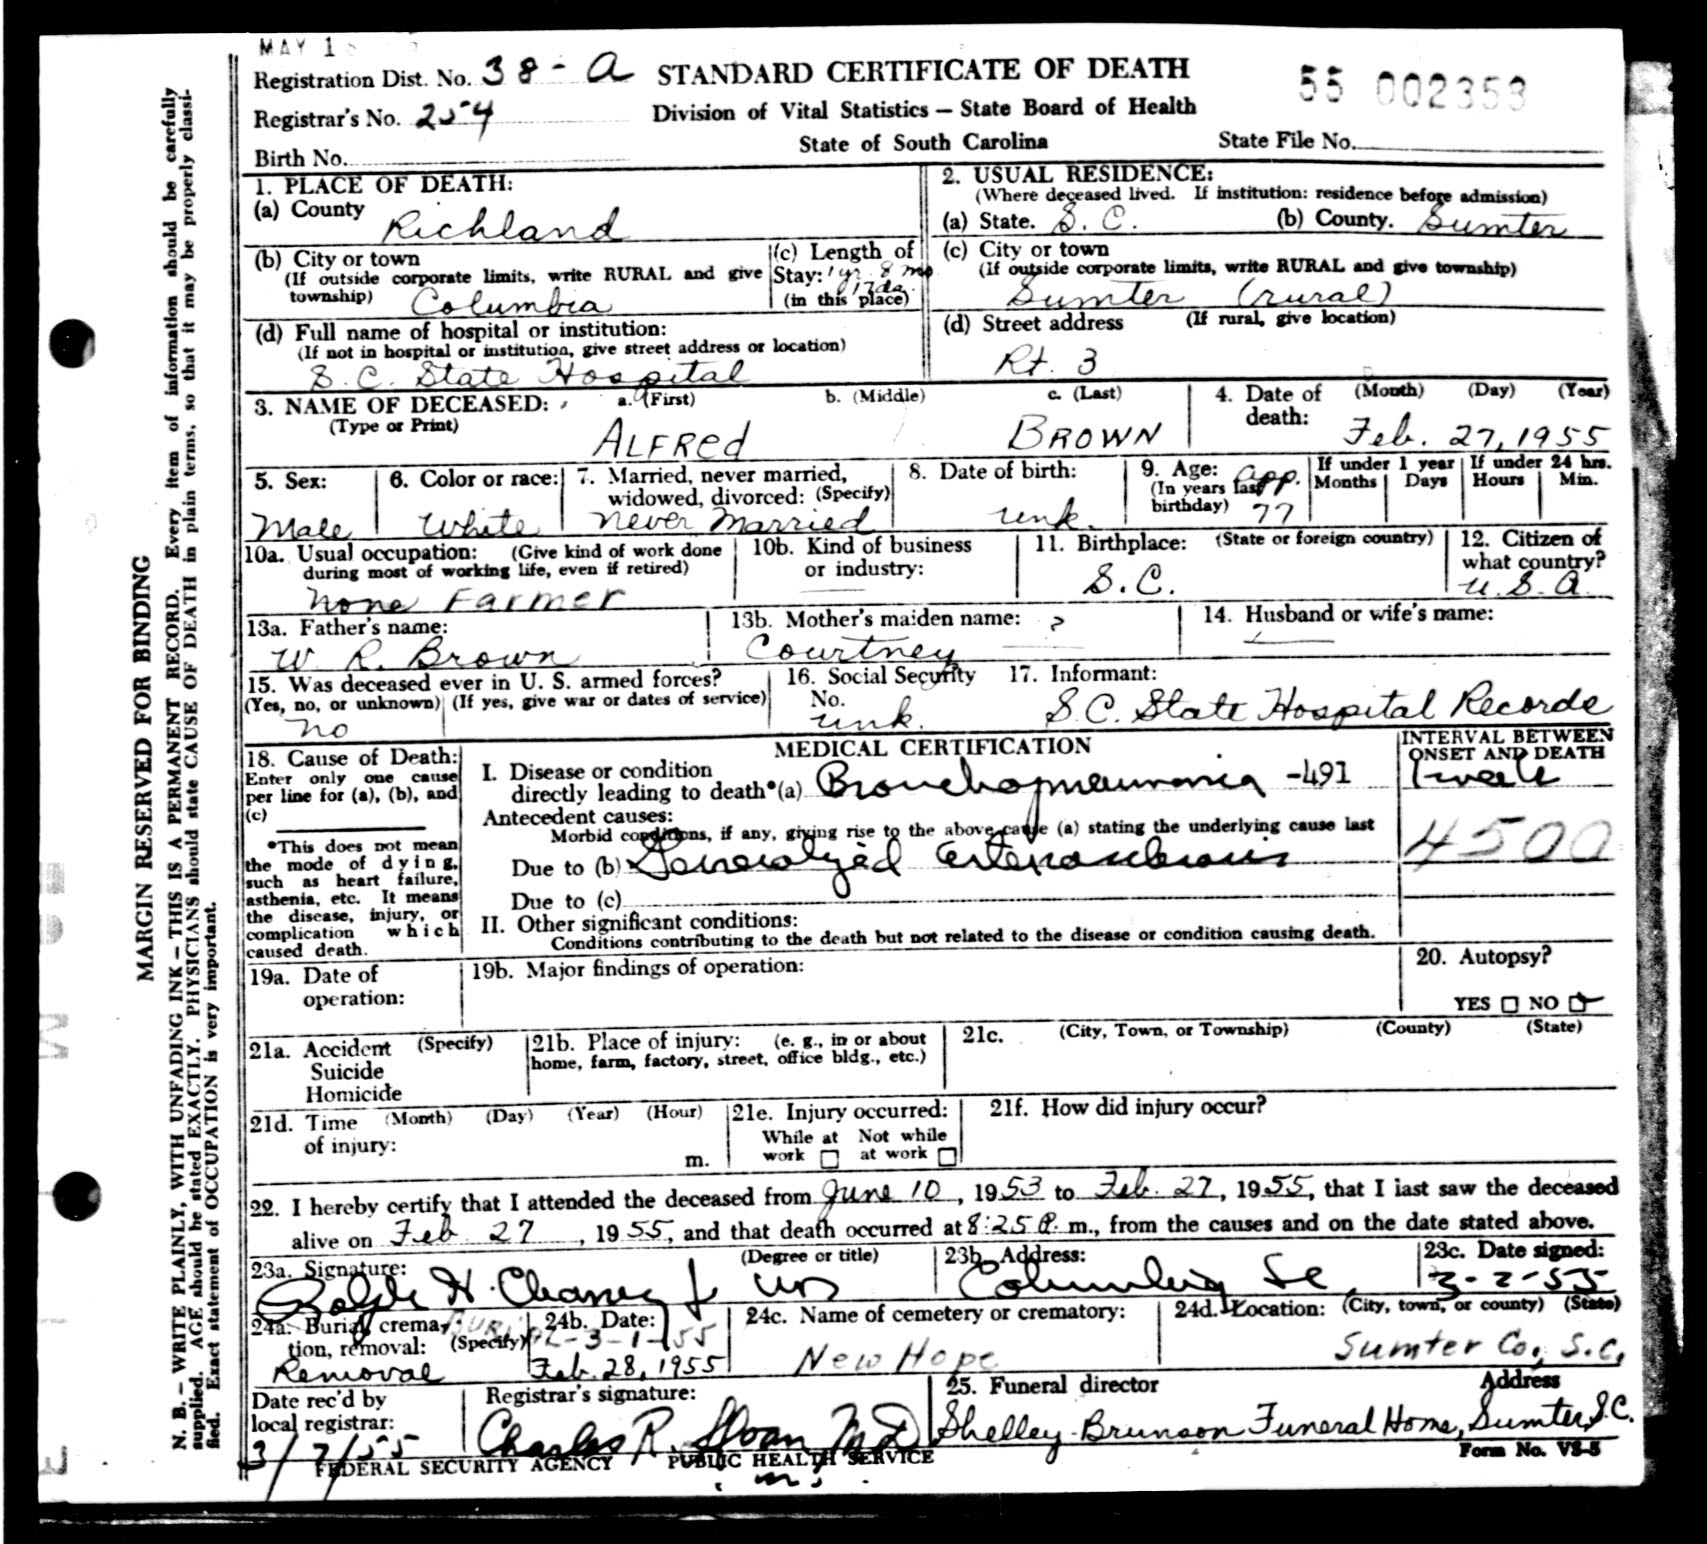 MAY 1
Registration Dist. No. 38-A STANDARD CERTIFICATE OF DEATH 55 002353
Registrar's No. 254 Division of Vital Statistics — State Board of Health
Birth No. State of South Carolina State File No.
1. PLACE OF DEATH:
(a) County
Richland
2. USUAL RESIDENCE:
(Where deceased lived. If institution: residence before admission)
(a) State. S. C. (b) County. Sumter
(b) City or town
(If outside corporate limits, write RURAL and give
township) Columbia
(c) Length of
Stay: 1 yr. 8 mo
17 da.
(in this place)
(c) City or town
(If outside corporate limits, write RURAL and give township)
Sumter (rural)
(d) Full name of hospital or institution:
(If not in hospital or institution, give street address or location)
S. C. State Hospital
(d) Street address (If rural, give location)
Rt. 3
3. NAME OF DECEASED: a. (First) b. (Middle) c. (Last)
(Type or Print)
ALFRed BROWN
4. Date of (Month) (Day) (Year)
death:
Feb. 27, 1955
5. Sex:
Male
6. Color or race:
White
7. Married, never married,
widowed, divorced: (Specify)
never married
8. Date of birth:
unk.
9. Age: app.
(In years last
birthday) 77
If under 1 year
Months Days
If under 24 hrs.
Hours Min.
10a. Usual occupation: (Give kind of work done
during most of working life, even if retired)
None Farmer
10b. Kind of business
or industry:
11. Birthplace: (State or foreign country)
S.C.
12. Citizen of
what country?
U.S.A.
13a. Father's name:
W. R. Brown
13b. Mother's maiden name: ?
Courtney
14. Husband or wife's name:
15. Was deceased ever in U. S. armed forces?
(Yes, no, or unknown) (If yes, give war or dates of service)
no
16. Social Security
No.
unk.
17. Informant:
S.C. State Hospital Records
18. Cause of Death:
Enter only one cause
per line for (a), (b), and
(c)
*This does not mean
the mode of dying,
such as heart failure,
asthenia, etc. It means
the disease, injury, or
complication which
caused death.
MEDICAL CERTIFICATION
I. Disease or condition
directly leading to death*(a) Bronchopneumonia -491
Antecedent causes:
Morbid conditions, if any, giving rise to the above cause (a) stating the underlying cause last
Due to (b) Generalized arteriosclerosis
Due to (c)
II. Other significant conditions:
Conditions contributing to the death but not related to the disease or condition causing death.
INTERVAL BETWEEN
ONSET AND DEATH
1 week
4500
19a. Date of
operation:
19b. Major findings of operation:
20. Autopsy?
YES NO
21a. Accident (Specify)
Suicide
Homicide
21b. Place of injury: (e. g., in or about
home, farm, factory, street, office bldg., etc.)
21c. (City, Town, or Township) (County) (State)
21d. Time (Month) (Day) (Year) (Hour)
of injury: m.
21e. Injury occurred:
While at Not while
work at work
21f. How did injury occur?
22. I hereby certify that I attended the deceased from June 10, 1953 to Feb. 27, 1955, that I last saw the deceased
alive on Feb 27, 1955, and that death occurred at 8:25 P. m., from the causes and on the date stated above.
23a. Signature: (Degree or title)
Ralph H. Chaney Jr MD
23b. Address:
Columbia SC
23c. Date signed:
3-2-55
24a. Burial, crema-
tion, removal: (Specify)
BURIAL
Removal
24b. Date:
3-1-55
Feb. 28, 1955
24c. Name of cemetery or crematory:
New Hope
24d. Location: (City, town, or county) (State)
Sumter Co., S.C.
Date rec'd by
local registrar:
3/7/55
Registrar's signature:
Charles R. Sloan MD
25. Funeral director Address
Shelley-Brunson Funeral Home, Sumter, S.C.
Form No. VS-5
FEDERAL SECURITY AGENCY PUBLIC HEALTH SERVICE
MARGIN RESERVED FOR BINDING
N. B. — WRITE PLAINLY, WITH UNFADING INK — THIS IS A PERMANENT RECORD. Every item of information should be carefully
supplied. AGE should be stated EXACTLY. PHYSICIANS should state CAUSE OF DEATH in plain terms, so that it may be properly classi-
fied. Exact statement of OCCUPATION is very important.